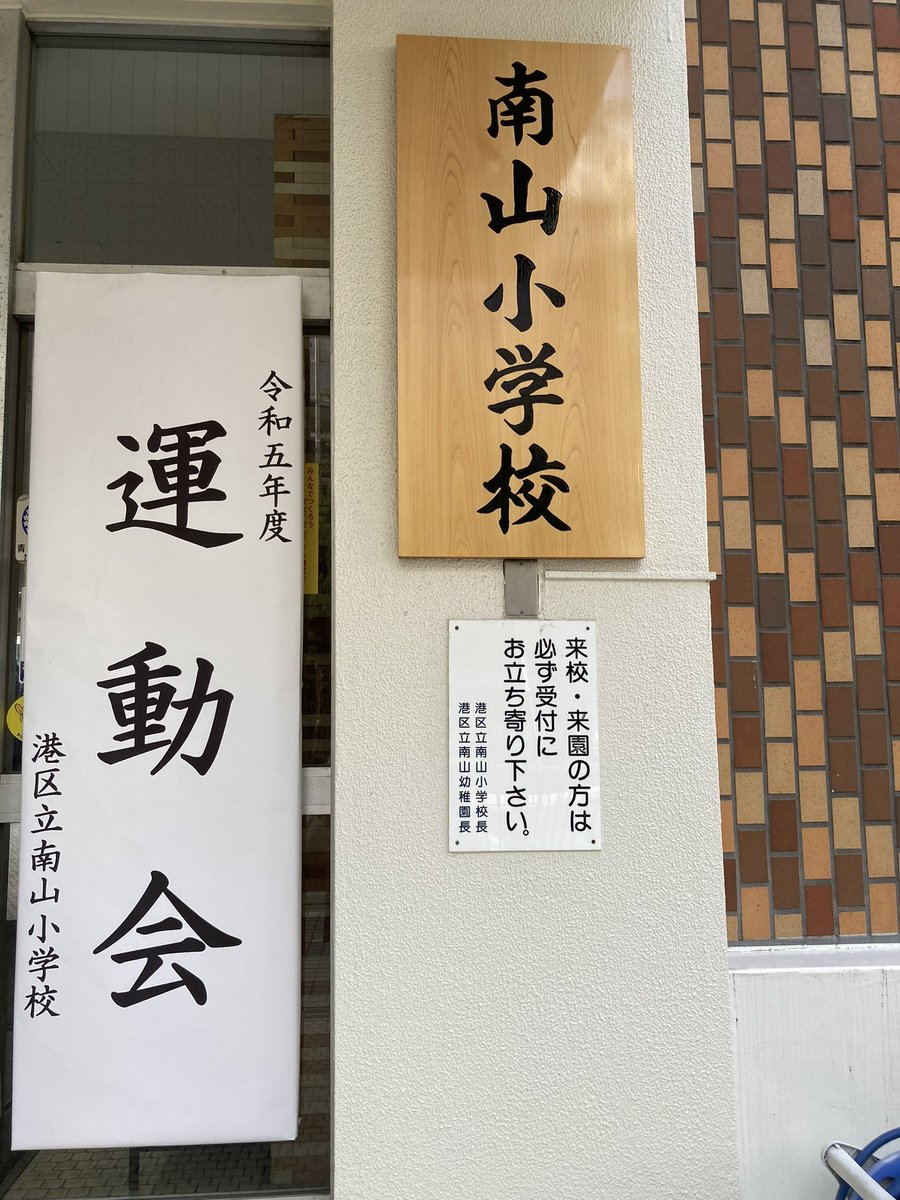 南山小学校
令和五年度
運動会
港区立南山小学校
来校・来園の方は
必ず受付に
お立ち寄り下さい。
港区立南山小学校長
港区立南山幼稚園長
みんなでつくろう
青